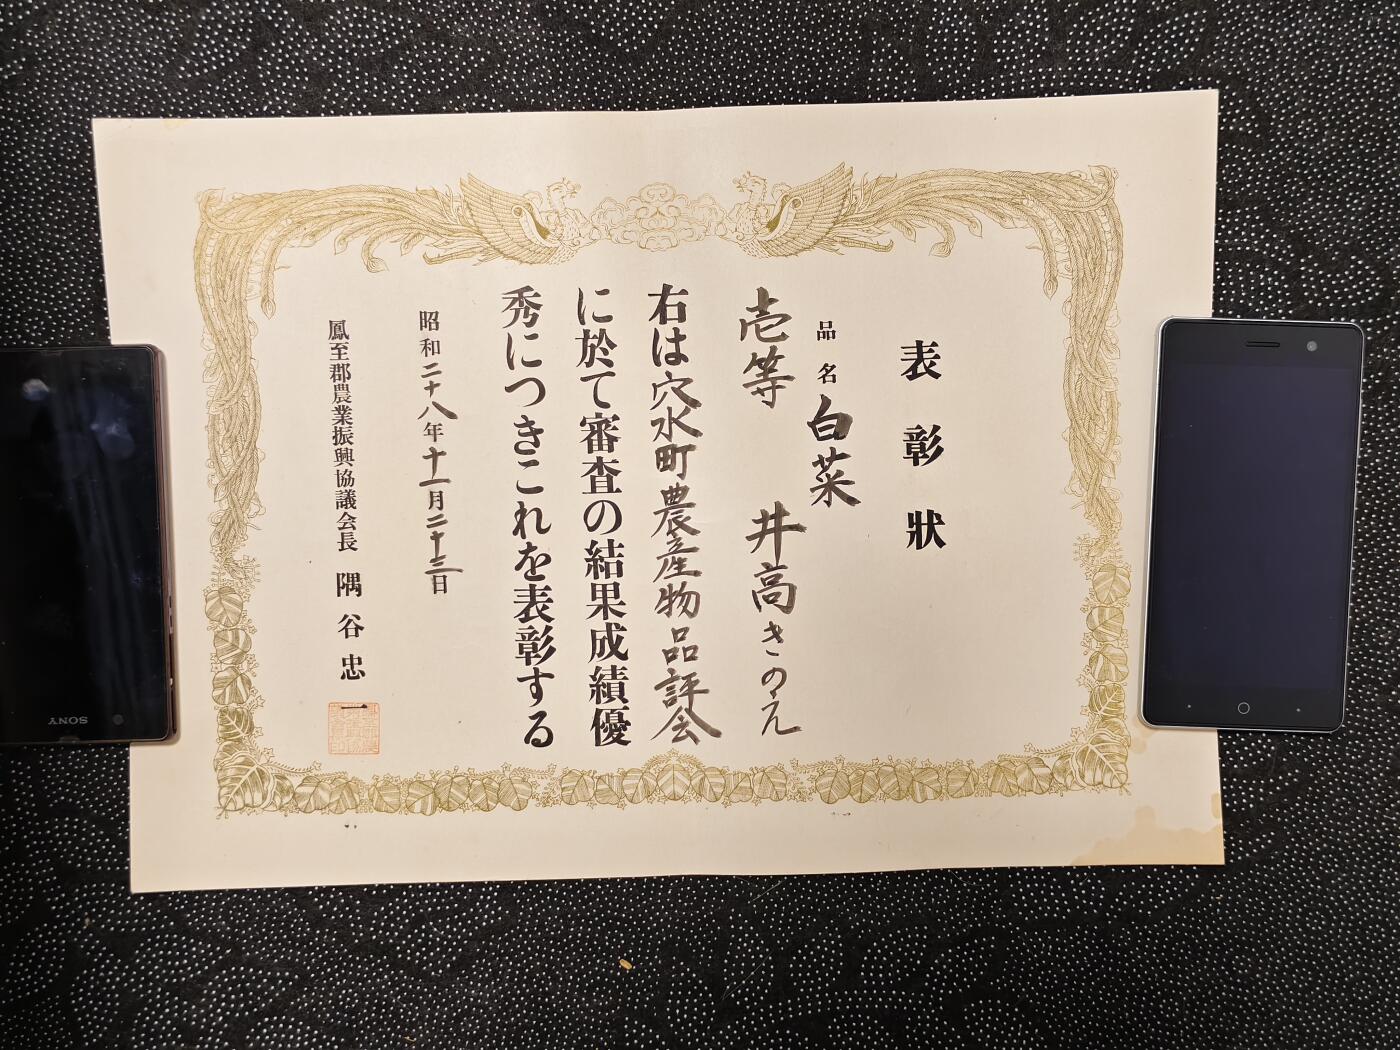 表彰狀
品名 白菜
壱等 井高きのえ
右は穴水町農産物品評会
に於て審査の結果成績優
秀につきこれを表彰する
昭和二十八年十一月二十三日
鳳至郡農業振興協議会長 隅谷忠一
SONY